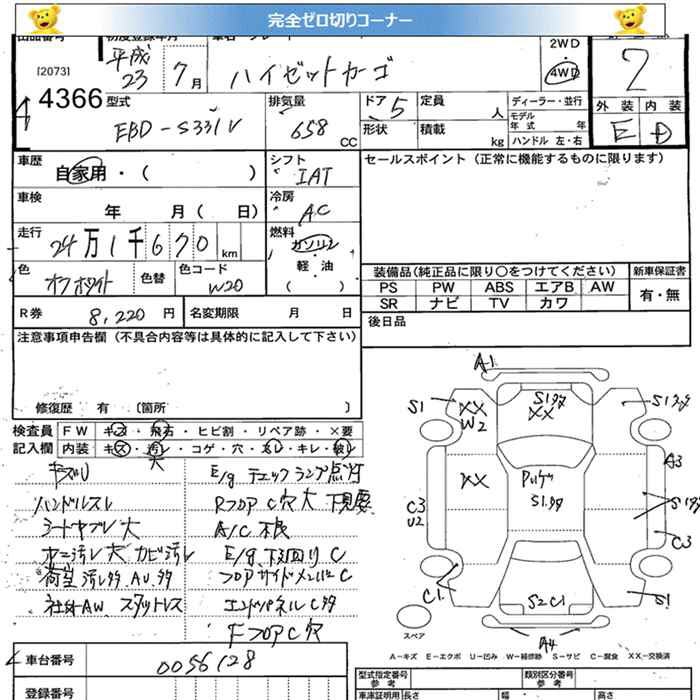 完全ゼロ切りコーナー
出品番号 初度登録年月 車名・グレード 2WD
[2073] 平成23 7月 ハイゼットカーゴ 4WD 2
4366 型式 排気量 ドア 5 定員 人 ディーラー・並行 外装 内装
EBD-S331V 658 CC 形状 積載 kg モデル年式 年 E D
ハンドル 左・右
車歴 シフト セールスポイント(正常に機能するものに限ります)
自家用・( ) IAT
車検 冷房
年 月( 日) AC
走行 燃料
24万1千670km ガソリン
軽・油
色 色替 色コード ( ) 装備品(純正品に限り○をつけてください) 新車保証書
オフホワイト W20 PS PW ABS エアB AW 有・無
SR ナビ TV カワ
R券 8,220円 名変期限 月 日 後日品
注意事項申告欄(不具合内容等は具体的に記入して下さい)
修復歴 有 〔箇所 〕
検査員 FW キズ・飛石・ヒビ割・リペア跡・×要
記入欄 内装・キズ・汚レ・コゲ・穴・スレ・キレ・破レ
大
キズU E/gチェックランプ点灯
ハンドルスレ RフロアC穴大 下見要
シートヤブレ大 A/C不良
汚レ大 カビ汚レ E/g下回りC
荷室汚レ多 AU多 フロアサイドメンバーC
社外AW スタットレス エンドパネルC多
FフロアC穴
A1
S1 XX W2 S1多 XX S1多
XX S1多 A3
C3 U2 S1多
C3
C1 S2C1 S1
スペア A4
A…キズ E…エクボ U…凹み W…補修跡 S…サビ C…腐食 XX…交換済
車台番号 0056128 型式指定番号 参考 類別区分番号 参考
登録番号 車庫証明用 長さ 幅 高さ